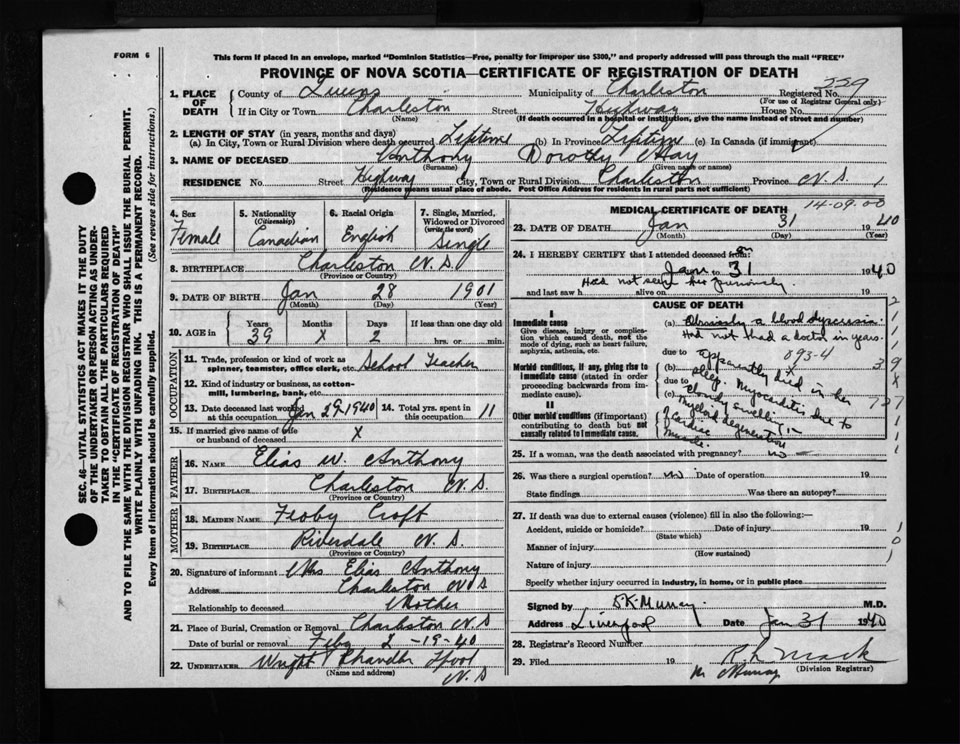 FORM 6
This form if placed in an envelope, marked "Dominion Statistics—Free, penalty for improper use $300," and properly addressed will pass through the mail "FREE"
PROVINCE OF NOVA SCOTIA—CERTIFICATE OF REGISTRATION OF DEATH
Registered No. 559
1. PLACE OF DEATH County of Queens Municipality of Charleston
(For use of Registrar General only.)
If in City or Town Charleston Street Highway House No.
(Name) (If death occurred in a hospital or institution, give the name instead of street and number)
2. LENGTH OF STAY (in years, months and days)
(a) In City, Town or Rural Division where death occurred Lifetime (b) In Province Lifetime (c) In Canada (if immigrant)
3. NAME OF DECEASED Anthony Dorothy May
(Surname) (Given name or names)
RESIDENCE No. Street Highway City, Town or Rural Division Charleston Province N.S. 1
(Residence means usual place of abode. Post Office Address for residents in rural parts not sufficient)
4. Sex Female
5. Nationality (Citizenship) Canadian
6. Racial Origin English
7. Single, Married, Widowed or Divorced (write the word) Single
8. BIRTHPLACE Charleston N.S
(Province or Country)
9. DATE OF BIRTH Jan 28 1901
(Month) (Day) (Year)
10. AGE in Years 39 Months x Days 2 If less than one day old
hrs. or min.
OCCUPATION
11. Trade, profession or kind of work as spinner, teamster, office clerk, etc. School Teacher
12. Kind of industry or business, as cotton-mill, lumbering, bank, etc.
13. Date deceased last worked at this occupation Jan 29-1940 14. Total yrs. spent in this occupation 11
15. If married give name of wife or husband of deceased X
FATHER
16. NAME Elias W. Anthony
17. BIRTHPLACE Charleston N.S.
(Province or Country)
MOTHER
18. MAIDEN NAME Croft
19. BIRTHPLACE Riverdale N.S.
(Province or Country)
20. Signature of informant Mrs Elias Anthony
Address Charleston N.S
Relationship to deceased Mother
21. Place of Burial, Cremation or Removal Charleston N.S
Date of burial or removal Feby 2-19-40
22. UNDERTAKER Wright Chandler Lpool
(Name and address) N.S
14-09.00
MEDICAL CERTIFICATE OF DEATH
23. DATE OF DEATH Jan 31 1940
(Month) (Day) (Year)
24. I HEREBY CERTIFY that I attended deceased from on
Jan to 31 1940
and last saw h alive on Had not seen her previously. 19
CAUSE OF DEATH
I
Immediate cause
Give disease, injury or complication which caused death, not the mode of dying, such as heart failure, asphyxia, asthenia, etc.
(a) Obviously a blood dyscrasia.
Had not had a doctor in years.
due to 093-4
Morbid conditions, if any, giving rise to immediate cause (stated in order proceeding backwards from immediate cause).
(b) apparently died in her
due to sleep. Myocarditis due to
(c) cloudy swelling,
II
Other morbid conditions (if important) contributing to death but not causally related to immediate cause.
myeloid degeneration
? cardiac
muscle.
25. If a woman, was the death associated with pregnancy? no
26. Was there a surgical operation? no Date of operation 19
State findings Was there an autopsy?
27. If death was due to external causes (violence) fill in also the following:—
Accident, suicide or homicide? Date of injury 19
(State which)
Manner of injury
(How sustained)
Nature of injury
Specify whether injury occurred in industry, in home, or in public place
Signed by S K Murray. M.D.
Address Liverpool Date Jan 31 1940
28. Registrar's Record Number
29. Filed 19 Mack
(Division Registrar)
Murray
SEC. 46—VITAL STATISTICS ACT MAKES IT THE DUTY OF THE UNDERTAKER OR PERSON ACTING AS UNDERTAKER TO OBTAIN ALL THE PARTICULARS REQUIRED IN THE "CERTIFICATE OF REGISTRATION OF DEATH"
AND TO FILE THE SAME WITH THE DIVISION REGISTRAR WHO SHALL ISSUE THE BURIAL PERMIT.
WRITE PLAINLY WITH UNFADING INK. THIS IS A PERMANENT RECORD.
Every item of information should be carefully supplied. (See reverse side for instructions.)